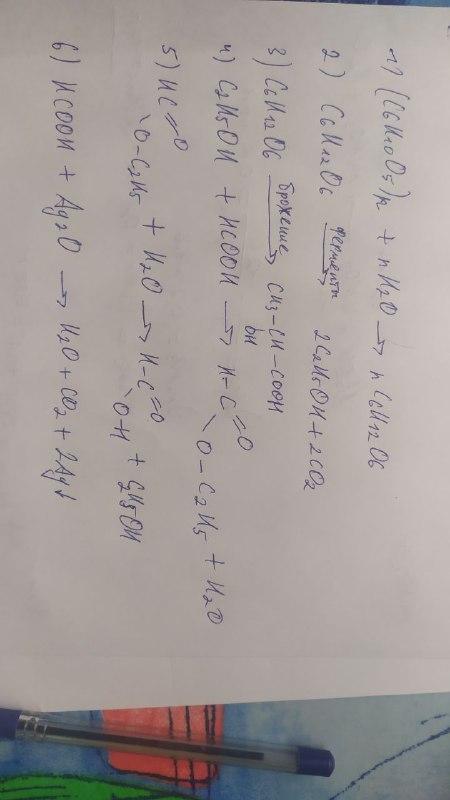 1) (C6H10O5)n + nH2O → nC6H12O6
2) C6H12O6 ферменты → 2C2H5OH + 2CO2
3) C6H12O6 брожение → CH3-CH-COOH
OH
4) C2H5OH + HCOOH → H-C=O
\O-C2H5 + H2O
5) HC=O
\O-C2H5 + H2O → H-C=O
\O-H + C2H5OH
6) HCOOH + Ag2O → H2O + CO2 + 2Ag↓